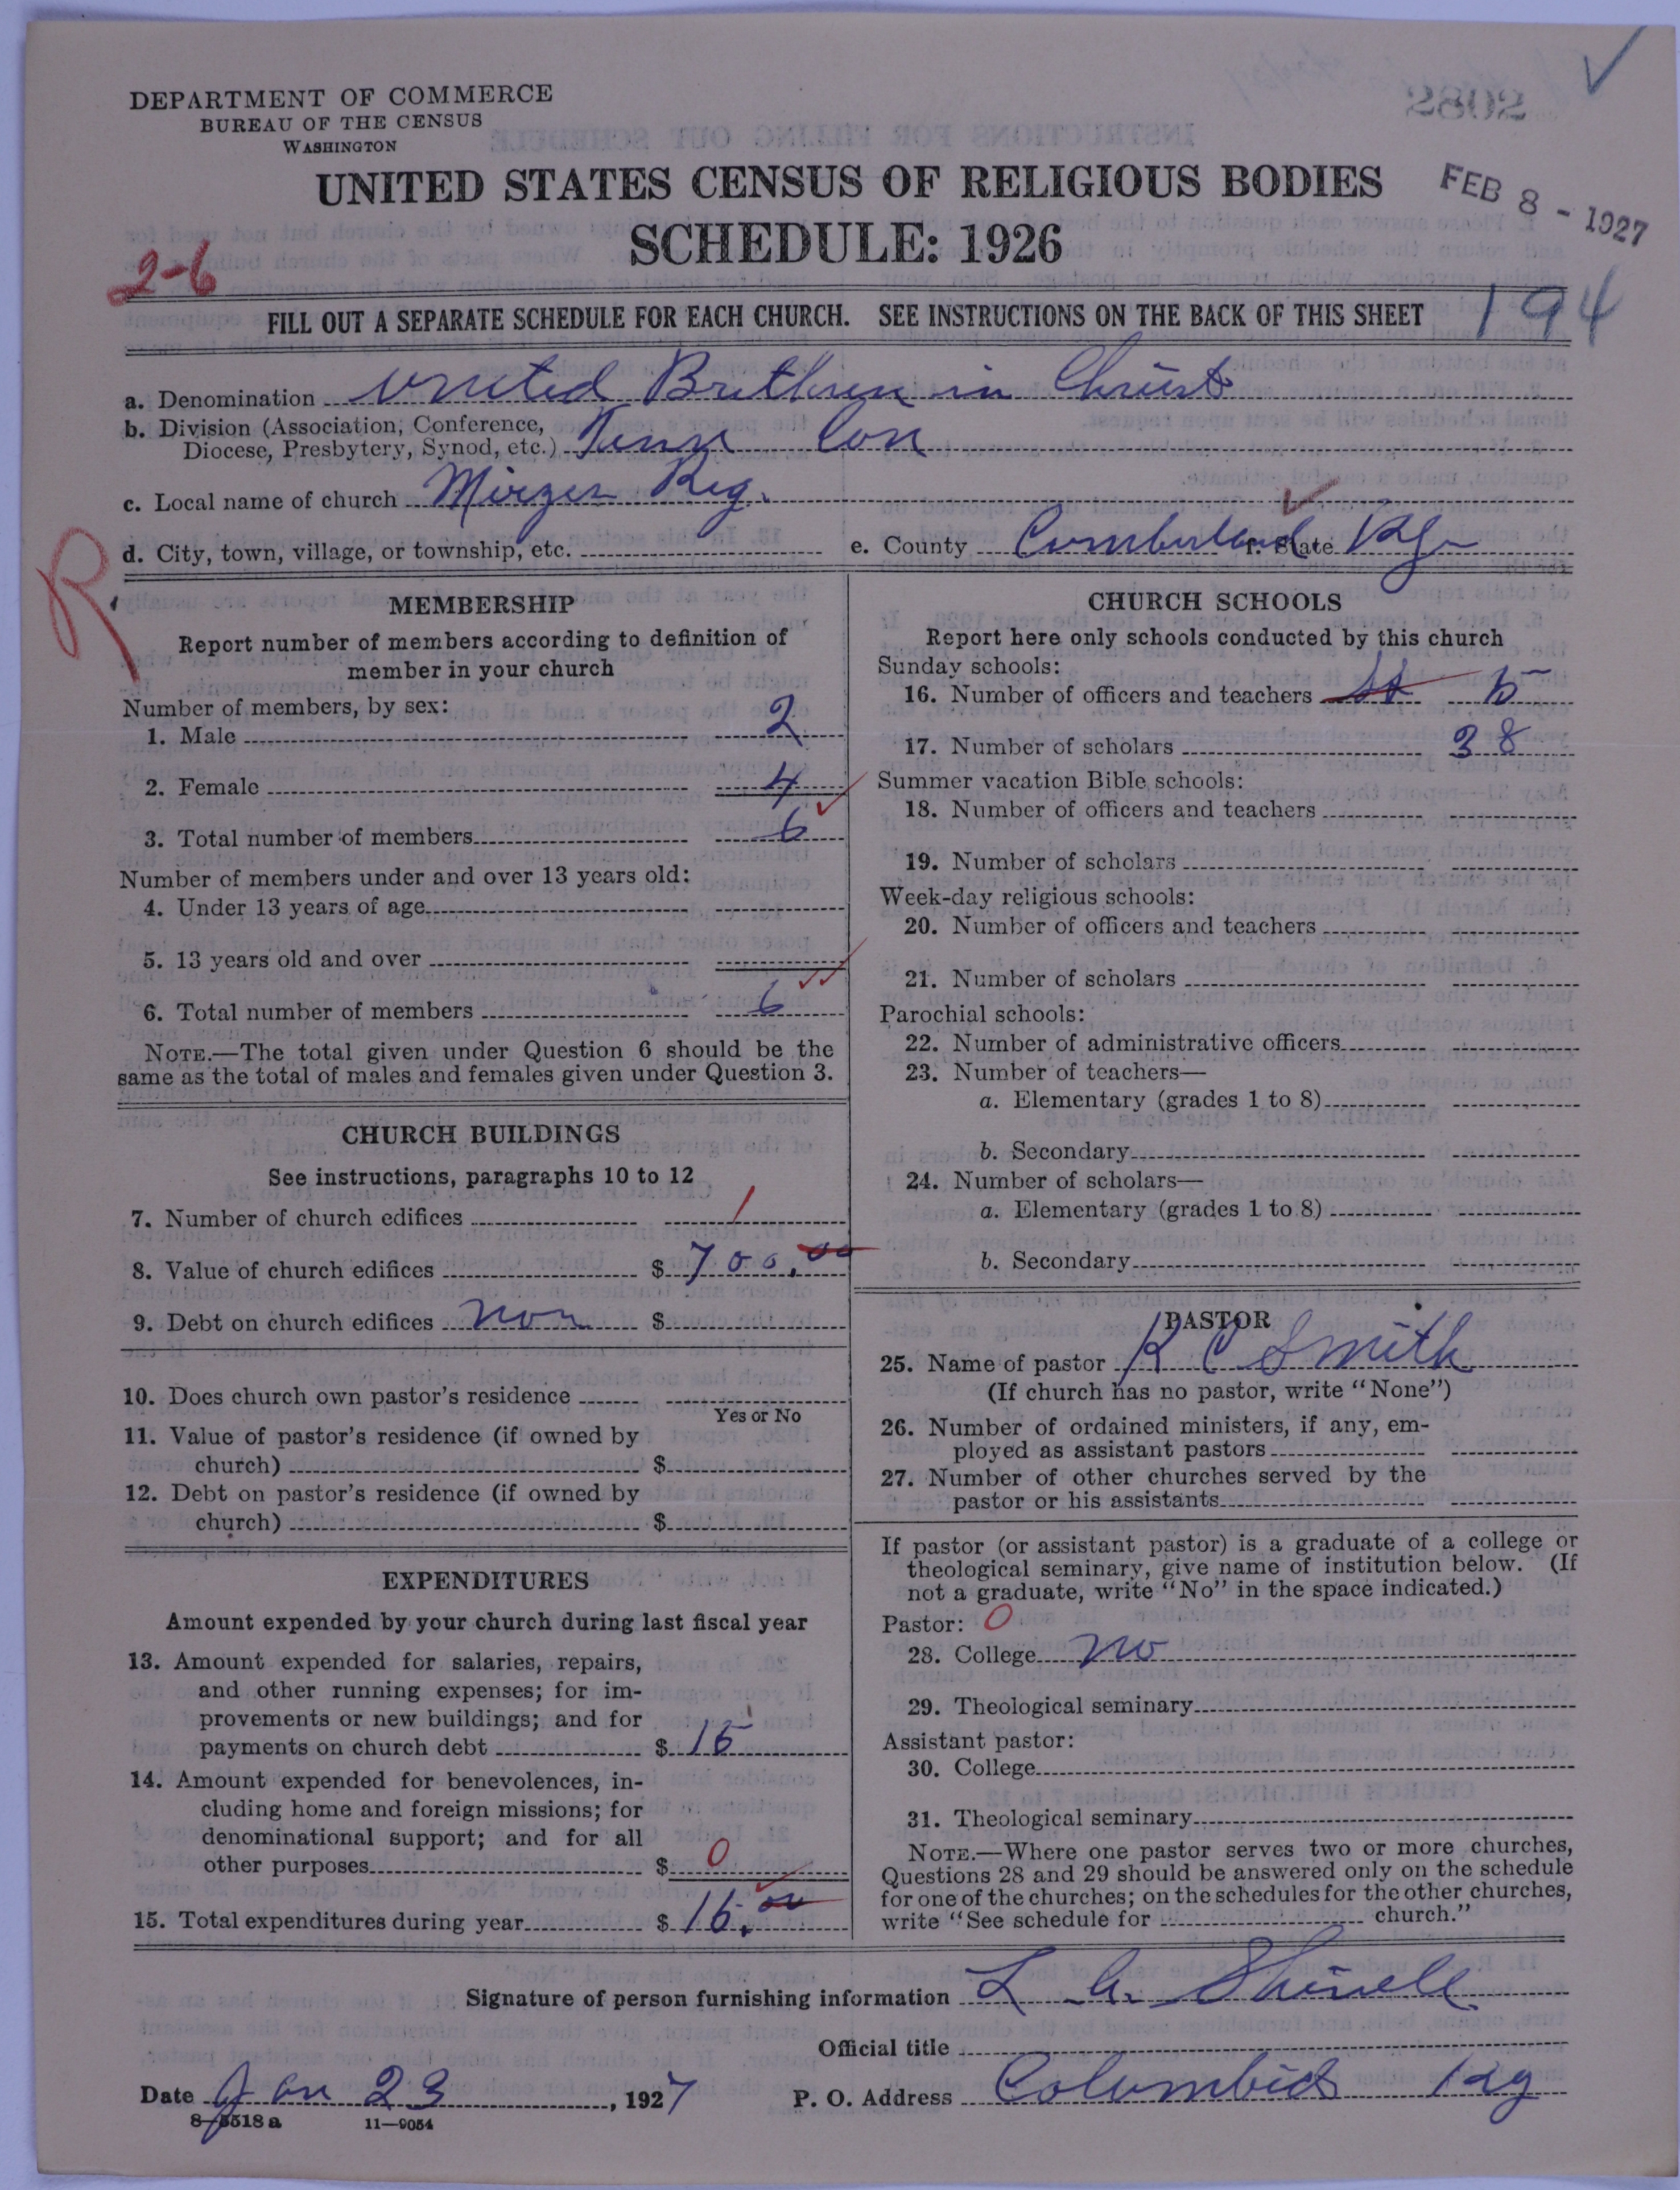 DEPARTMENT OF COMMERCE
BUREAU OF THE CENSUS
WASHINGTON
2082
UNITED STATES CENSUS OF RELIGIOUS BODIES
SCHEDULE: 1926
FEB 8 - 1927
2-6
194
FILL OUT A SEPARATE SCHEDULE FOR EACH CHURCH. SEE INSTRUCTIONS ON THE BACK OF THIS SHEET
a. Denomination United Brethren in Christ
b. Division (Association, Conference,
Diocese, Presbytery, Synod, etc.) Tenn Con
c. Local name of church
d. City, town, village, or township, etc.
e. County Cumberland f. State Ky
R
MEMBERSHIP
Report number of members according to definition of
member in your church
Number of members, by sex:
1. Male 2
2. Female 4
3. Total number of members 6
Number of members under and over 13 years old:
4. Under 13 years of age
5. 13 years old and over
6. Total number of members 6
NOTE.—The total given under Question 6 should be the
same as the total of males and females given under Question 3.
CHURCH BUILDINGS
See instructions, paragraphs 10 to 12
7. Number of church edifices 1
8. Value of church edifices $ 700.00
9. Debt on church edifices non $
10. Does church own pastor's residence
Yes or No
11. Value of pastor's residence (if owned by
church) $
12. Debt on pastor's residence (if owned by
church) $
EXPENDITURES
Amount expended by your church during last fiscal year
13. Amount expended for salaries, repairs,
and other running expenses; for im-
provements or new buildings; and for
payments on church debt $ 15
14. Amount expended for benevolences, in-
cluding home and foreign missions; for
denominational support; and for all
other purposes $ 0
15. Total expenditures during year $ 15.00
CHURCH SCHOOLS
Report here only schools conducted by this church
Sunday schools:
16. Number of officers and teachers 5
17. Number of scholars 38
Summer vacation Bible schools:
18. Number of officers and teachers
19. Number of scholars
Week-day religious schools:
20. Number of officers and teachers
21. Number of scholars
Parochial schools:
22. Number of administrative officers
23. Number of teachers—
a. Elementary (grades 1 to 8)
b. Secondary
24. Number of scholars—
a. Elementary (grades 1 to 8)
b. Secondary
PASTOR
25. Name of pastor R C Smith
(If church has no pastor, write "None")
26. Number of ordained ministers, if any, em-
ployed as assistant pastors
27. Number of other churches served by the
pastor or his assistants
If pastor (or assistant pastor) is a graduate of a college or
theological seminary, give name of institution below. (If
not a graduate, write "No" in the space indicated.)
Pastor: 0
28. College no
29. Theological seminary
Assistant pastor:
30. College
31. Theological seminary
NOTE.—Where one pastor serves two or more churches,
Questions 28 and 29 should be answered only on the schedule
for one of the churches; on the schedules for the other churches,
write "See schedule for church."
Signature of person furnishing information L. A.
Official title
Date Jan 23, 1927
P. O. Address Columbia Ky
8-5518 a 11-9054